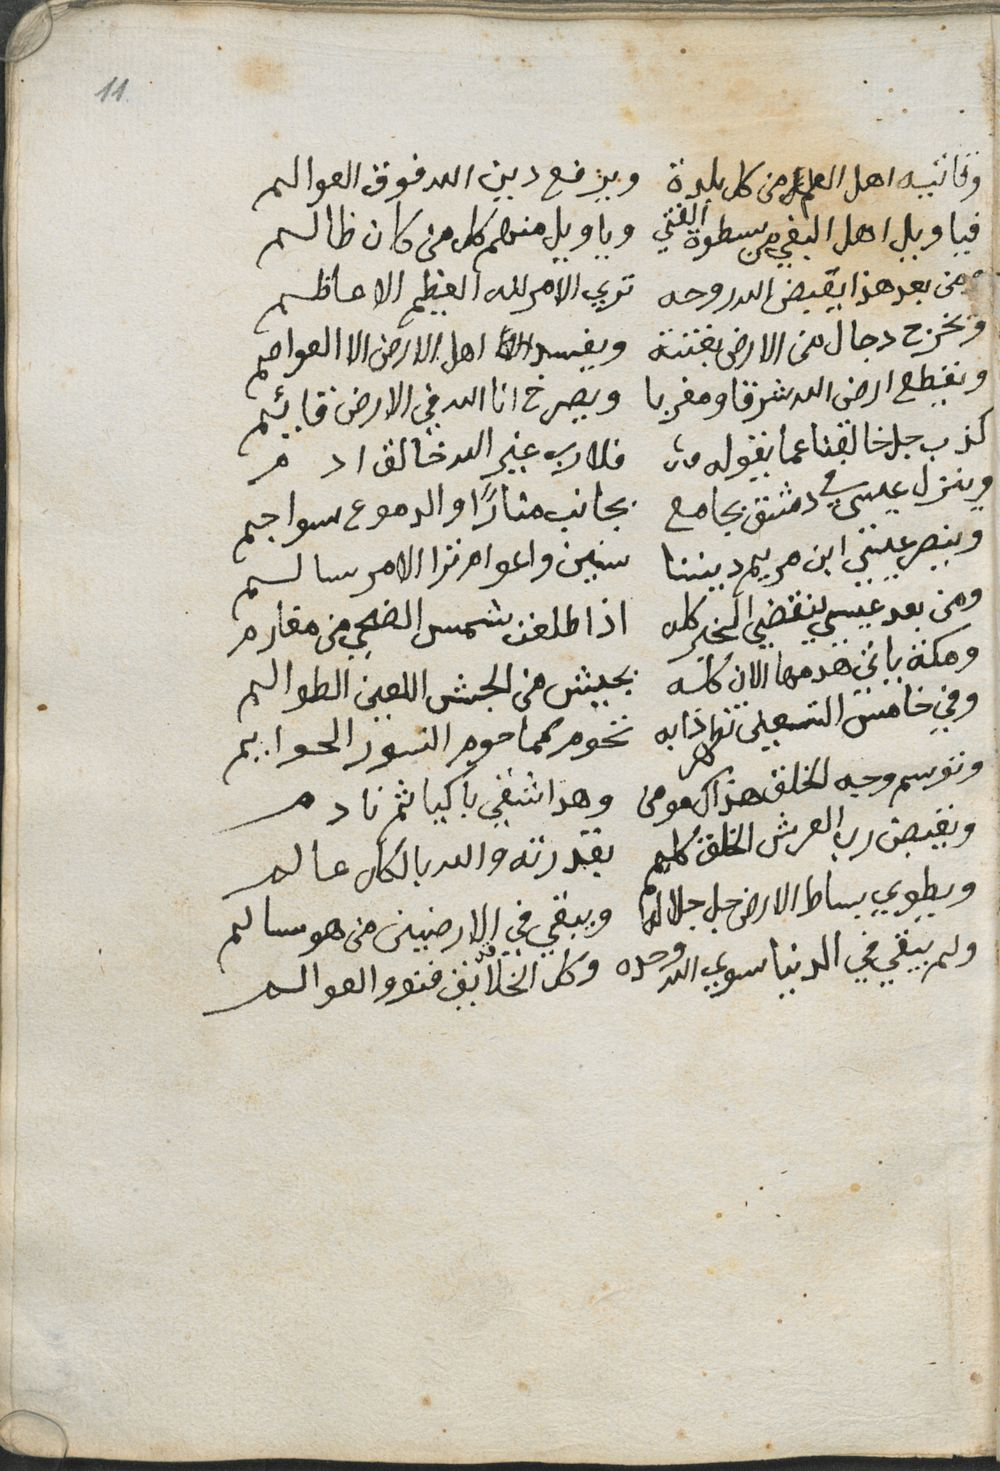 11
وتاتيه اهل العلم من كل بلدة ويرفع دين الله فوق العوالم
فيا ويل اهل البغي من سطوة الفتي ويا ويل منهم كل من كان ظالم
ومن بعد هذا يقبض الله روحه تري الامر لله العظيم الاعاظم
ويخرج دجال من الارض بغتتة ويفسد اهل الارض الا العواصم
ويقطع ارض الله شرقا ومغربا ويصرخ انا الله في الارض قايئم
كذب جل خالقنا عما يقوله فلا رب غير الله خالق ادم
وينزل عيسي في دمشق بجامع بجانب منارًا والدموع سواجم
وينصر عيسي ابن مريم ديننا سنين واعوام ترا الامر سالم
ومن بعد عيسي ينقضي الخير كله اذا طلعت شمس الضحي من مغارم
ومكة ياتي هدمها الان كله بجيش من الحبش اللعين الطوالم
وفي خامس التسعين تحوم كما حوم النسور الحوايم
وتوسم وجه الخلق هذاك مومن وهدا شقي باكيا ثم نادم
ويقبض رب العرش الخلق كلهم بقدرته والله بالكل عالم
ويطوي بساط الارض جل جلاله ويبقي في الارضين من هو سالم
ولم يبقي في الدنيا سوي الله وحده وكل الخلايق فنوو العوالم